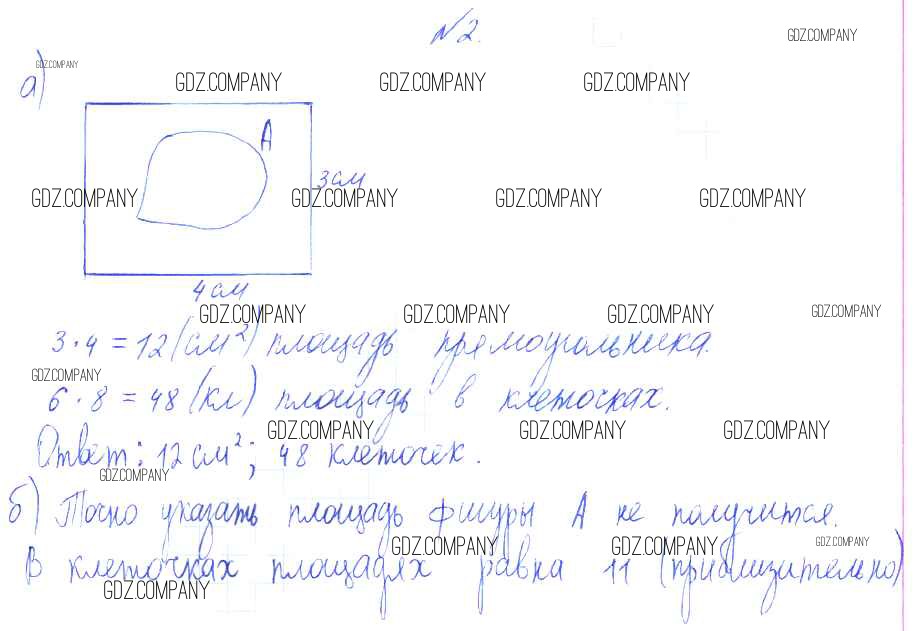 №2.
GDZ.COMPANY
GDZ.COMPANY
а)
GDZ.COMPANY GDZ.COMPANY GDZ.COMPANY
А
3 см
GDZ.COMPANY GDZ.COMPANY GDZ.COMPANY GDZ.COMPANY
4 см
GDZ.COMPANY GDZ.COMPANY GDZ.COMPANY GDZ.COMPANY
3·4=12 (см²) площадь прямоугольника.
GDZ.COMPANY
6·8=48 (кл) площадь в клеточках.
GDZ.COMPANY GDZ.COMPANY GDZ.COMPANY
Ответ: 12 см²; 48 клеточек.
GDZ.COMPANY
б) Точно указать площадь фигуры А не получится.
GDZ.COMPANY GDZ.COMPANY GDZ.COMPANY
В клеточках площадях равна 11 (приблизительно)
GDZ.COMPANY